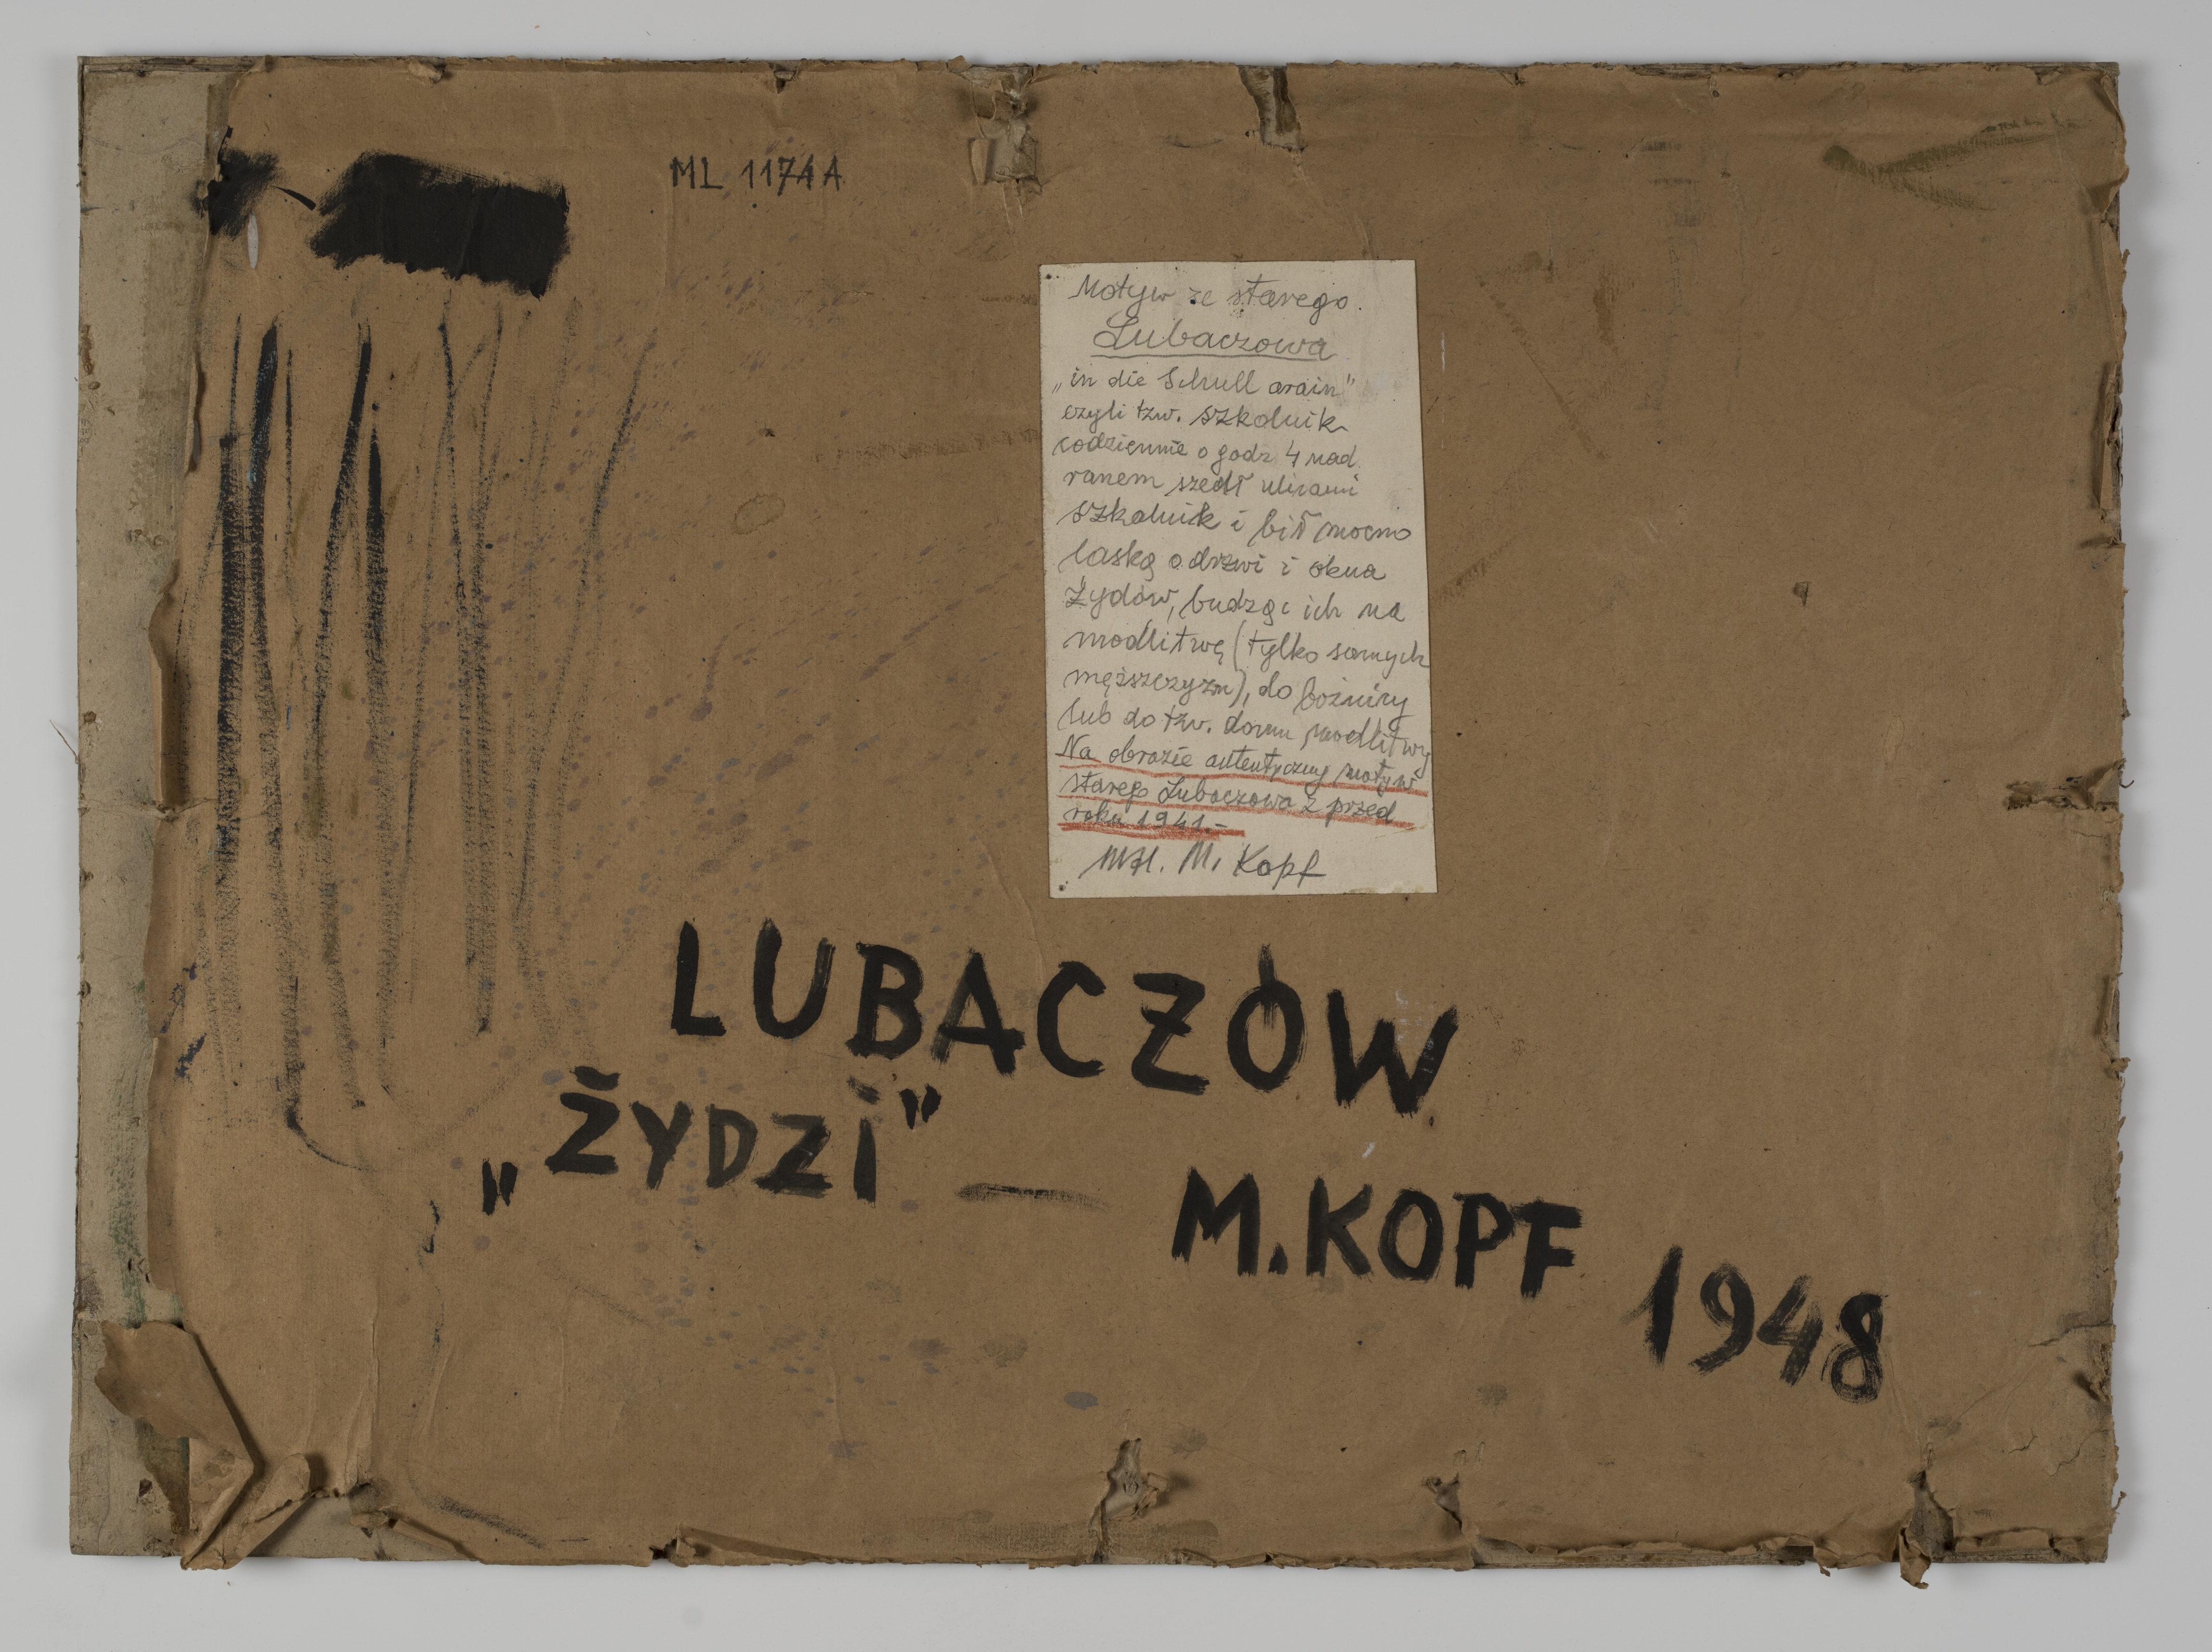 ML 1174A
Motyw ze starego.
Lubaczowa
„in die Schull arain"
czyli tzw. szkolnik
codziennie o godz 4 nad
ranem szedł ulicami
szkolnik i bił mocno
laską o drzwi i okna
Żydów, budząc ich na
modlitwę (tylko samych
męższczyzn), do bożnicy
lub do tzw. domu modlitwy
Na obrazie autentyczny motyw
starego Lubaczowa z przed
roku 1941.-
M. Kopf
LUBACZÓW
„ŻYDZI" — M. KOPF 1948